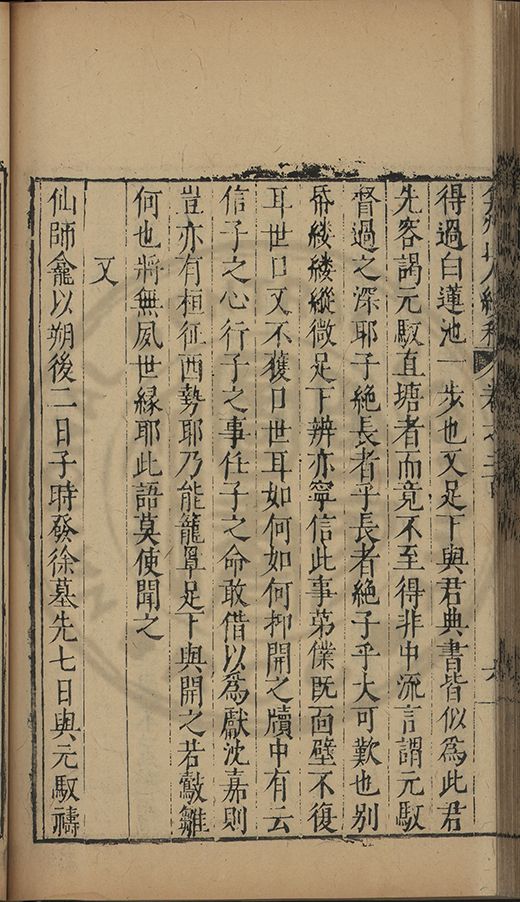 弇州山人續稿 卷之二百 六
得過白蓮池一步也又足下與君典書皆似為此君
先容謁元馭直塘者而竟不至得非中流言謂元馭
督過之深耶子絶長者乎長者絶子乎大可歎也别
帋縷縷縱微足下辨亦寧信此事苐僕既面壁不復
耳世口又不獲口世耳如何如何抑開之牘中有云
信子之心行子之事任子之命敢借以為獻沈嘉則
豈亦有桓征西勢耶乃能籠罩足下與開之若鷇雛
何也將無夙世縁耶此語莫使聞之
又
仙師龕以朔後二日子時發徐墓先七日與元馭禱